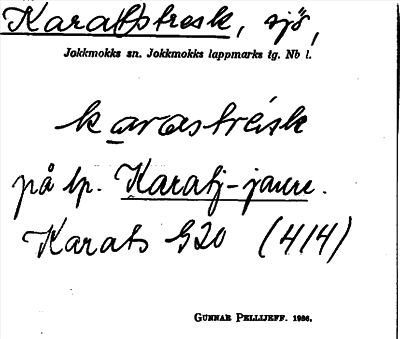 Karat(s)tresk, sjö,
Jokkmokks sn. Jokkmokks lappmarks tg. Nb l.
karastrésk
på lp. Karatj-jaure.
Karats G20 (414)
GUNNAR PELLIJEFF. 1986.